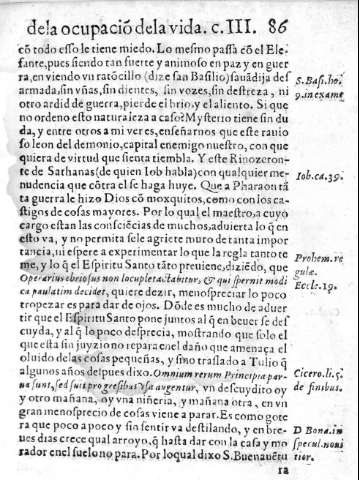 de la ocupació dela vida. c. III. 86
cõ todo esso le tiene miedo. Lo mesmo passa cõ el Ele-
fante, pues siendo tan fuerte y animoso en paz y en guer
ra, en viendo vn ratõcillo (dize san Basilio) sauãdija des
armada, sin vñas, sin dientes, sin vozes, sin destreza, ni
otro ardid de guerra, pierde el brio, y el aliento. Si que
no ordeno esto naturaleza a caso? Mysterio tiene sin du
da, y entre otros a mi ver es, enseñarnos que este rauio
so leon del demonio, capital enemigo nuestro, con que
quiera de virtud que sienta tiembla. Y este Rinozeron-
te de Sathanas (de quien Iob habla) con qualquier me-
nudencia que cõtra el se haga huye. Que a Pharaon tã
ta guerra le hizo Dios cõ mosquitos, como con los ca-
stigos de cosas mayores. Por lo qual el maestro, a cuyo
cargo estan las consciẽcias de muchos, aduierta lo q̃ en
esto va, y no permita se le agriete muro de tanta impor
tancia, ni espere a experimentar lo que la regla tanto te
me, y lo q̃ el Espiritu Santo tãto preuiene, diziẽdo, que
Operarius ebriosus non locupletabitur, & qui spernit modi
ca paulatim decidet, quiere dezir, menospreciar lo poco
tropezar es para dar de ojos. Dõde es mucho de aduer
tir que el Espiritu Santo pone juntos al q̃ en beuer se des
cuyda, y al q̃ lo poco desprecia, mostrando que solo el
que esta sin juyzio no repara en el daño que amenaça el
oluido de las cosas pequeñas, y sino traslado a Tulio q̃
algunos años despues dixo. Omnium rerum Principia par-
ua sunt, sed suis progresibus vsa augentur, vn descuydito oy
y otro mañana, oy vna niñeria, y mañana otra, en vn
gran menosprecio de cosas viene a parar. Es como gote
ra que poco a poco y sin sentir va destilando, y en bre-
ues dias crece qual arroyo, q̃ hasta dar con la casa y mo
rador en el suelo no para. Por lo qual dixo S. Buenauẽtu
ra
S. Basi. ho.
9. in exame
Iob. ca. 39.
Prohem. re
gulæ.
Eccle. 19.
Cicero. li. 5.
de finibus.
D Bona. in
specul. noui
tior.